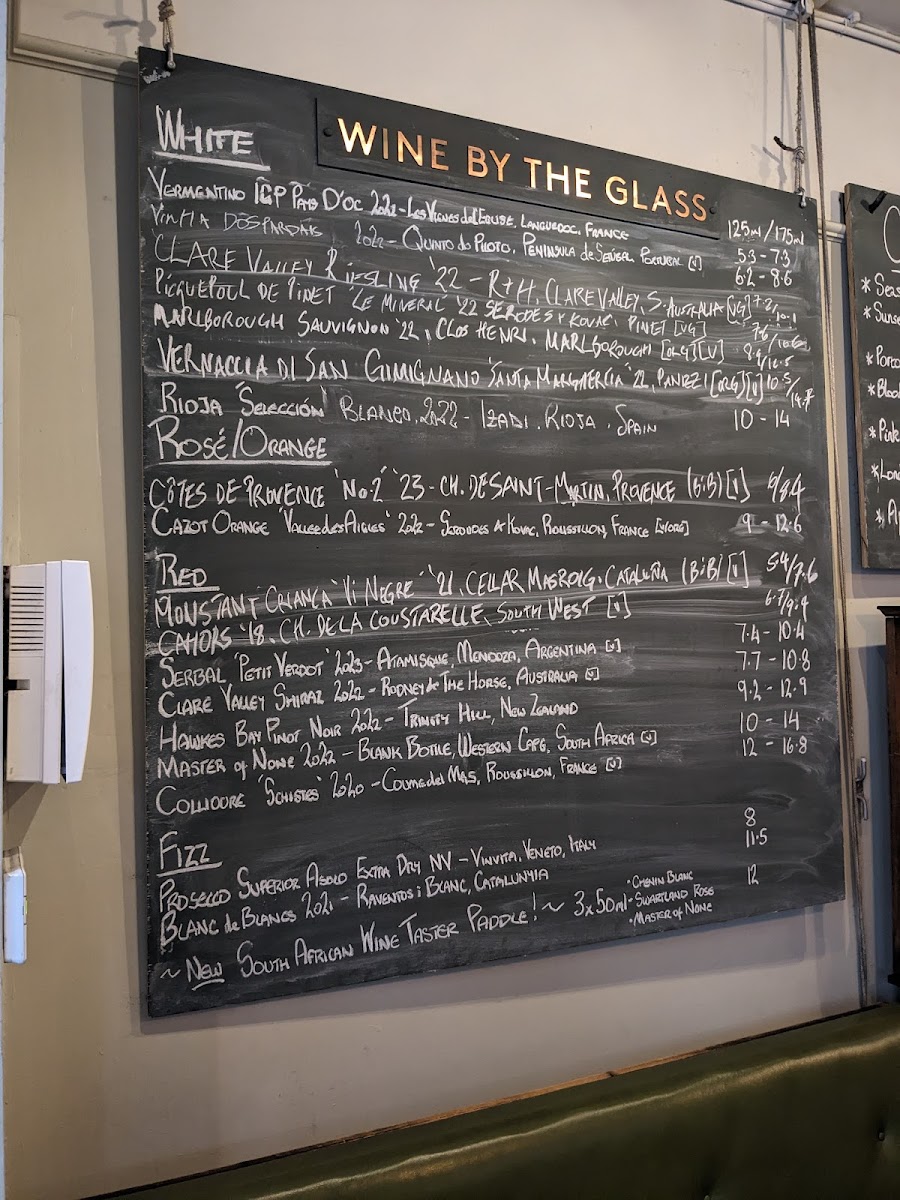 WINE BY THE GLASS
WHITE
125ml/175ml
VERMENTINO IGP PAYS D'OC 2022 - LES VIGNES DE L'EGLISE, LANGUEDOC, FRANCE 5.3 - 7.3
VINHA DESPARDAIS 2022 - QUINTO do PILOTO, PENINSULA de SETÚBAL PORTUGAL [V] 6.2 - 8.6
CLARE VALLEY RIESLING '22 - R+H, CLARE VALLEY, S. AUSTRALIA [VG] 7.2/10.1
PICQUEPOUL DE PINET 'LE MINERAL' '22 SERODES Y KOVAC, PINET [VG] 7.6/10.6
MARLBOROUGH SAUVIGNON '22, CLOS HENRI, MARLBOROUGH [ORG][V]
VERNACCIA DI SAN GIMIGNANO 'SANTA MARGHERITA' '22, PANIZZI [ORG][V] 10.5/14.7
RIOJA 'SELECCIÓN' BLANCO, 2022 - IZADI, RIOJA, SPAIN 10 - 14
ROSÉ/ORANGE
CÔTES DE PROVENCE 'NO.2' '23 - CH. DE SAINT-MARTIN, PROVENCE (BiB) [V] 6/8.4
CAZOT ORANGE 'VALLEE des AIGLES' 2022 - SERODES & KOVAC, ROUSSILLON, FRANCE [V/ORG] 9 - 12.6
RED
MONSTANT CRIANÇA 'VI NEGRE' '21, CELLAR MASROIG, CATALUÑA (BiB) [V] 5.4/7.6
CAHORS '18, CH. DE LA COUSTARELLE, SOUTH WEST [V] 6.7/9.4
SERBAL 'PETIT VERDOT' 2023 - ATAMISQUE, MENDOZA, ARGENTINA [V] 7.4 - 10.4
CLARE VALLEY SHIRAZ 2022 - RODNEY & THE HORSE, AUSTRALIA [V] 7.7 - 10.8
HAWKES BAY PINOT NOIR 2022 - TRINITY HILL, NEW ZEALAND 9.2 - 12.9
MASTER of NONE 2022 - BLANK BOTTLE, WESTERN CAPE, SOUTH AFRICA [V] 10 - 14
COLLIOURE 'SCHISTES' 2020 - COUME del MAS, ROUSSILLON, FRANCE [V] 12 - 16.8
FIZZ
PROSECCO SUPERIOR ASOLO EXTRA DRY NV - VINVITA, VENETO, ITALY 8
BLANC de BLANCS 2021 - RAVENTOS i BLANC, CATALUNYIA 11.5
~ NEW SOUTH AFRICAN WINE TASTER PADDLE! ~ 3x50ml 12
• CHENIN BLANC
• SWARTLAND ROSE
• MASTER of NONE